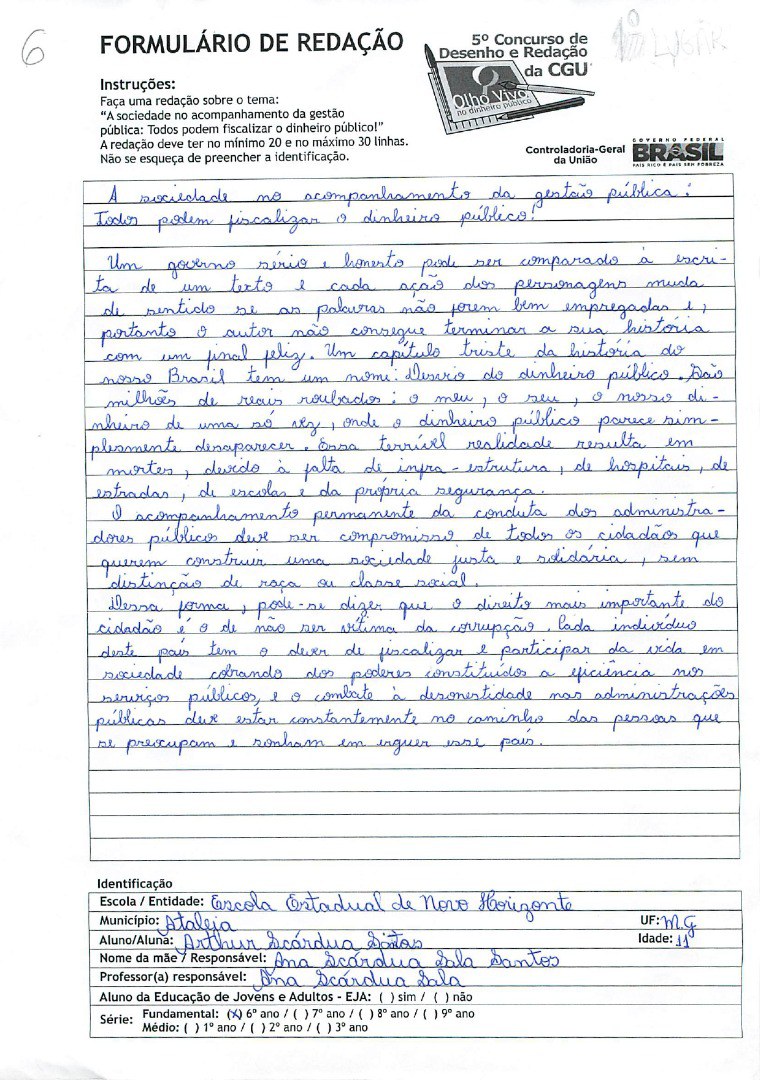 6
FORMULÁRIO DE REDAÇÃO
5º Concurso de
Desenho e Redação
da CGU
1º LUGAR
Olho Vivo
no dinheiro público
Instruções:
Faça uma redação sobre o tema:
"A sociedade no acompanhamento da gestão
pública: Todos podem fiscalizar o dinheiro público!"
A redação deve ter no mínimo 20 e no máximo 30 linhas.
Não se esqueça de preencher a identificação.
Controladoria-Geral
da União
GOVERNO FEDERAL
BRASIL
PAÍS RICO É PAÍS SEM POBREZA
A sociedade no acompanhamento da gestão pública:
Todos podem fiscalizar o dinheiro público!
Um governo sério e honesto pode ser comparado à escri-
ta de um texto e cada ação dos personagens muda
de sentido se as palavras não forem bem empregadas e,
portanto o autor não consegue terminar a sua história
com um final feliz. Um capítulo triste da história do
nosso Brasil tem um nome: Desvio do dinheiro público. São
milhões de reais roubados: o meu, o seu, o nosso di-
nheiro de uma só vez, onde o dinheiro público parece sim-
plesmente desaparecer. Essa terrível realidade resulta em
mortes, devido à falta de infra-estrutura, de hospitais, de
estradas, de escolas e da própria segurança.
O acompanhamento permanente da conduta dos administra-
dores públicos deve ser compromisso de todos os cidadãos que
querem construir uma sociedade justa e solidária, sem
distinção de raça ou classe social.
Dessa forma, pode-se dizer que o direito mais importante do
cidadão é o de não ser vítima da corrupção. Cada indivíduo
deste país tem o dever de fiscalizar e participar da vida em
sociedade cobrando dos poderes constituídos a eficiência nos
serviços públicos, e o combate à desonestidade nas administrações
públicas deve estar constantemente no caminho das pessoas que
se preocupam e sonham em erguer esse país.
Identificação
Escola / Entidade: Escola Estadual de Novo Horizonte
Município: Ataleia UF: M.G
Aluno/Aluna: Arthur Scárdua Santos Idade: 11
Nome da mãe / Responsável: Ana Scárdua Sala Santos
Professor(a) responsável: Ana Scárdua Sala
Aluno da Educação de Jovens e Adultos - EJA: ( ) sim / ( ) não
Série: Fundamental: (X) 6º ano / ( ) 7º ano / ( ) 8º ano / ( ) 9º ano
Médio: ( ) 1º ano / ( ) 2º ano / ( ) 3º ano